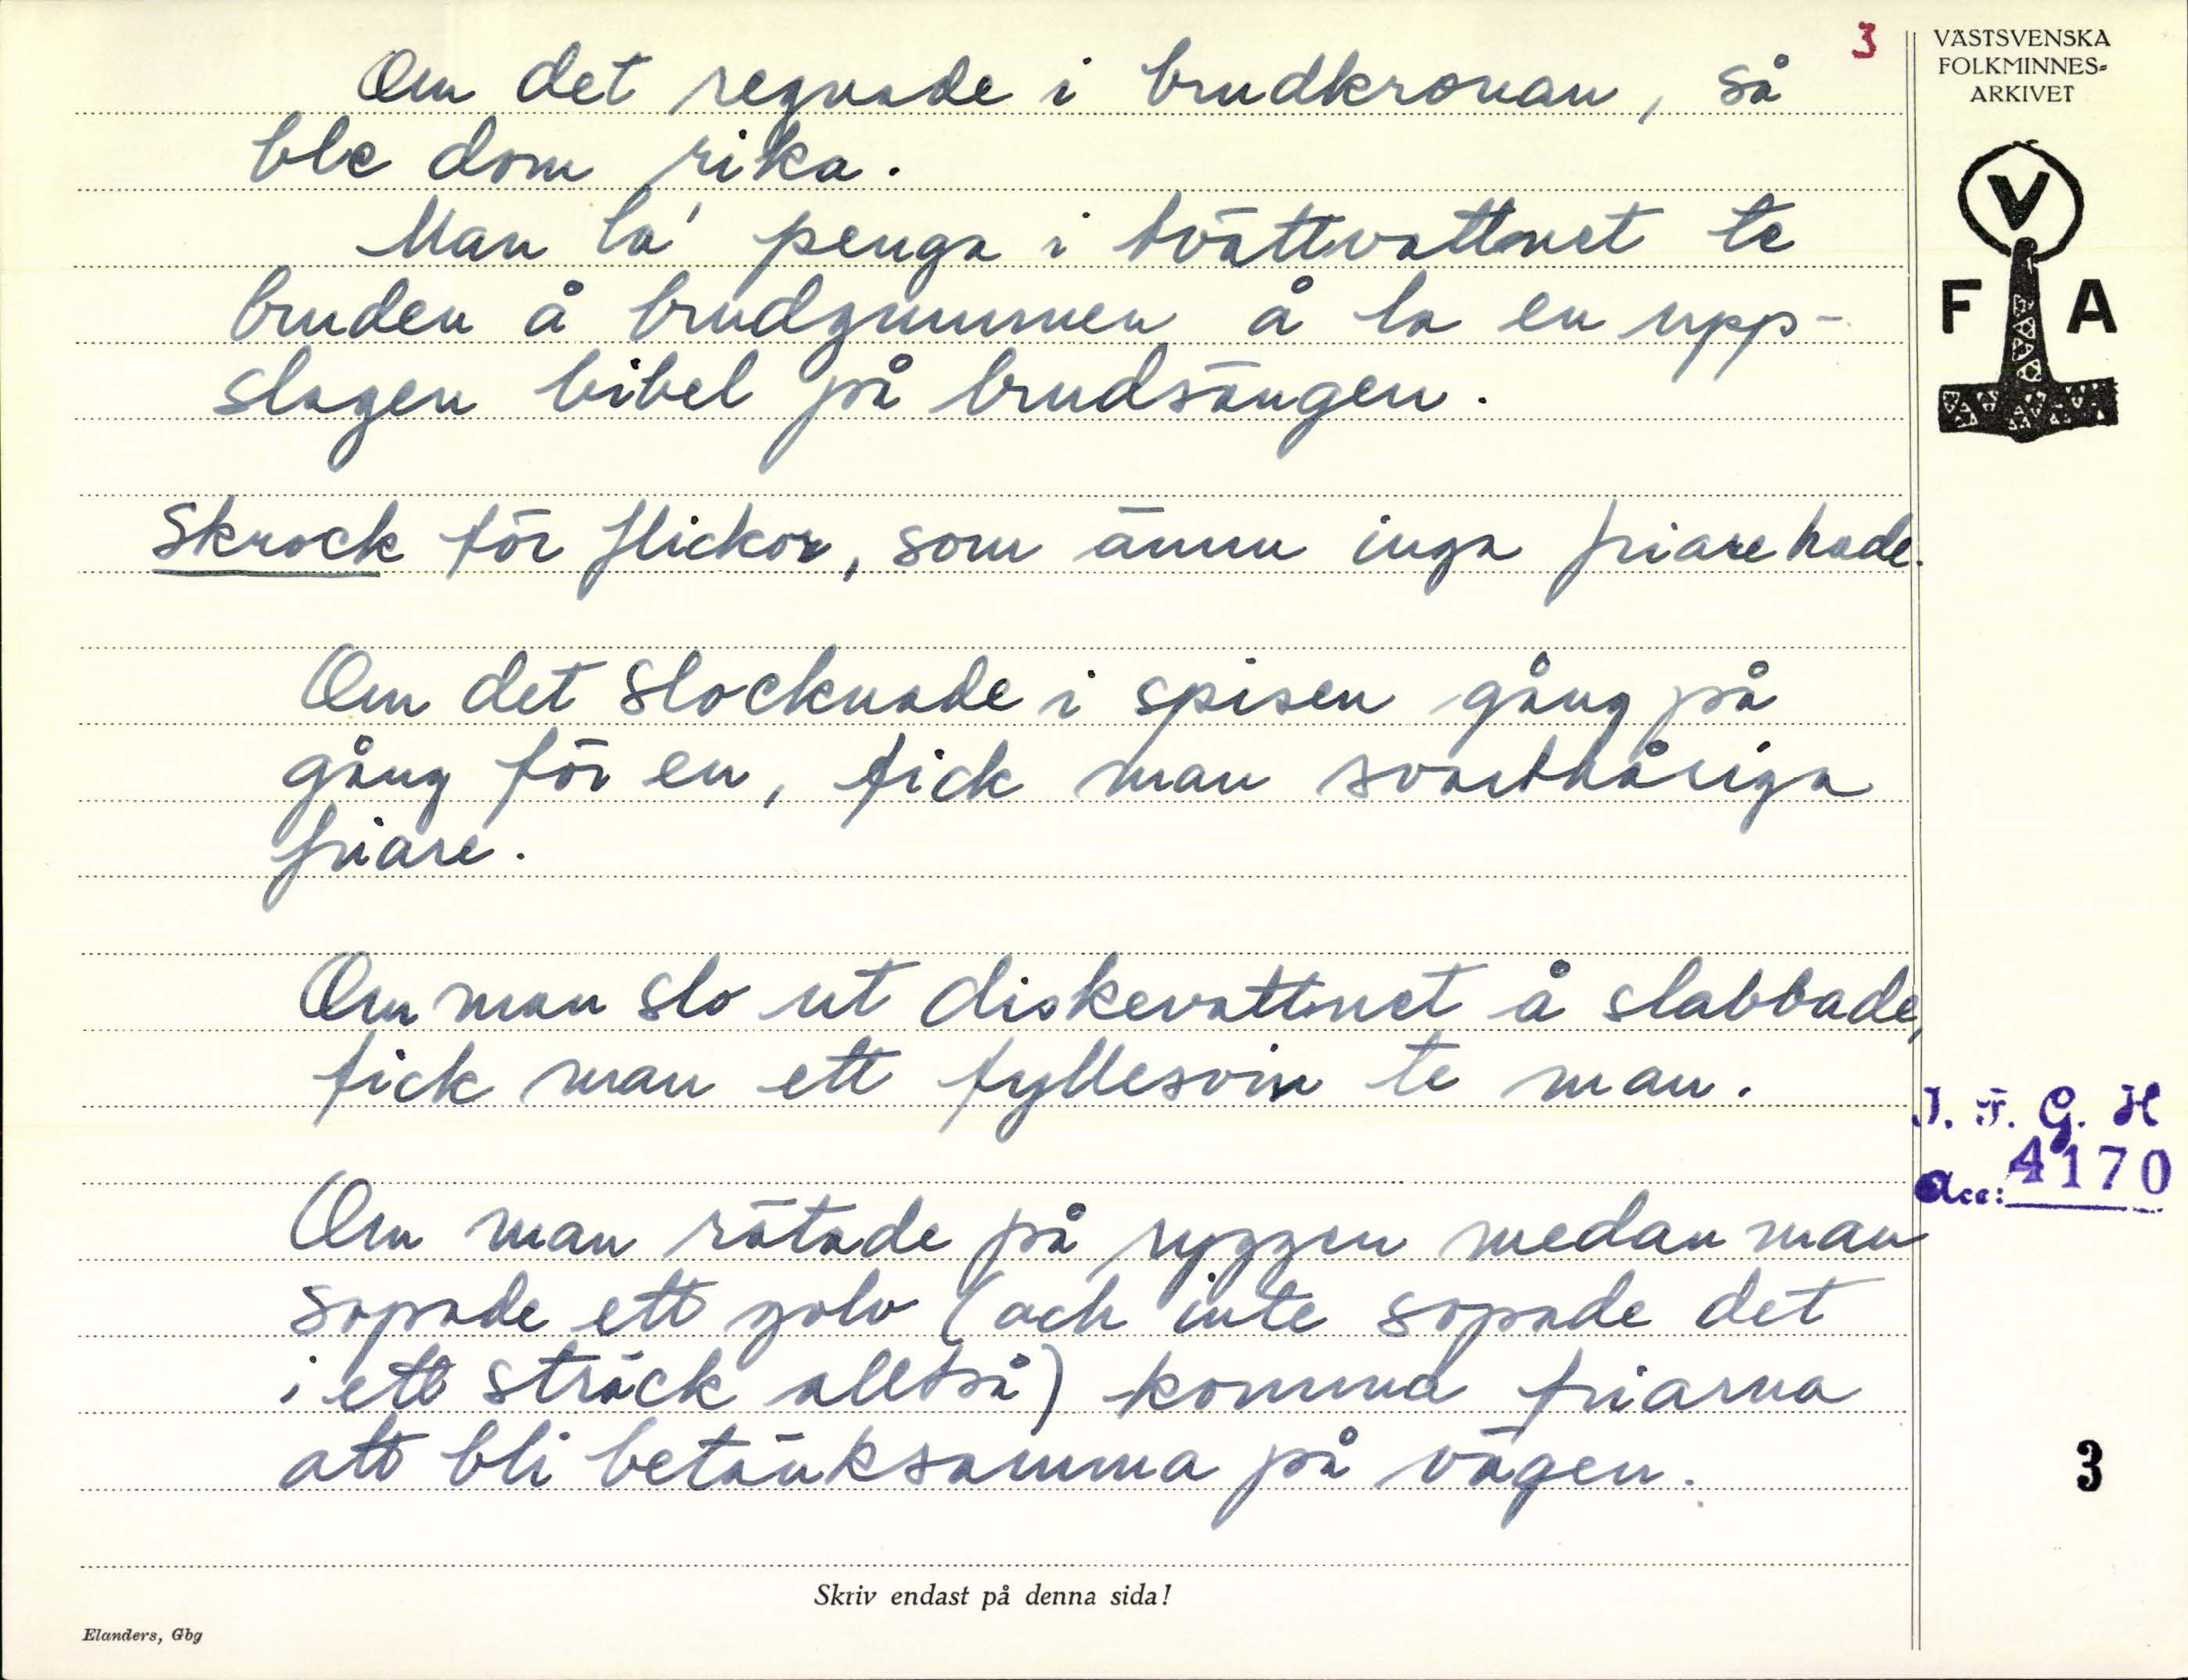 3
Om det regnade i brudkronan, så
ble dom rika.
Man la' penga i tvättvattnet te
bruden å brudgummen å la en upp-
slagen bibel på brudsängen.
Skrock för flickor, som ännu inga friare hade.
Om det slocknade i spisen gång på
gång för en, fick man svarthåriga
friare.
Om man slo ut diskevattnet å slabbade,
fick man ett fyllesvin te man.
Om man rätade på ryggen medan man
sopade ett golv (och inte sopade det
i ett sträck alltså) komma friarna
att bli betänksamma på vägen.
Skriv endast på denna sida!
Elanders, Gbg
VÄSTSVENSKA
FOLKMINNES-
ARKIVET
V
F A
I. F. G. H
Acc: 4170
3